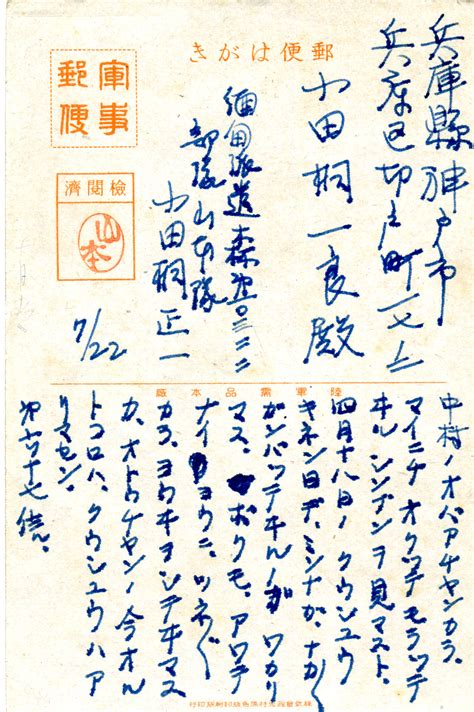 郵便はがき
軍事郵便
検閲濟
山本
兵庫縣神戸市
兵庫区切戸町一七ノ二
小田桐一良殿
緬甸派遣森第〇二二二
部隊山本隊
小田桐正一
7/22
陸軍需品本廠
中村ノオバアチヤンカラ
マイニチオクツテモラツテ
ヰルシンブンヲ見マスト、
四月十八日ノクウシユウ
キネン日デ、ミンナガ、ナカ〱
ガンバツテヰルノガワカリ
マス。ボクモ、アワテ
ナイヨウニ、ツネ〲
カラ、ヨウヰヲシテヰマス
ガ、オトウチヤンノ今オル
トコロハ、クウシユウハア
リマセン。
第六十七信、